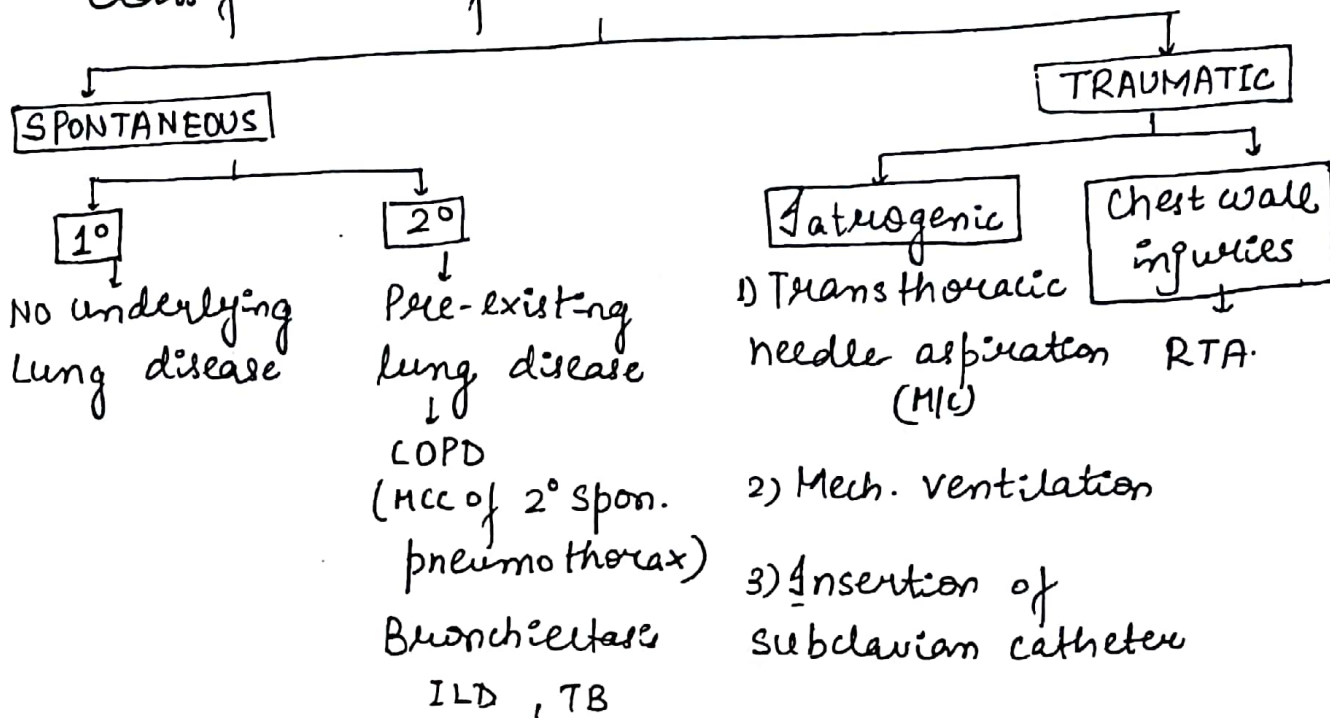 SPONTANEOUS
TRAUMATIC
1°
2°
Iatrogenic
Chest wall
injuries
No underlying
Lung disease
Pre-existing
lung disease
COPD
(MCC of 2° Spon.
pneumothorax)
Bronchiectasis
ILD, TB
1) Transthoracic
needle aspiration
(M/C)
2) Mech. ventilation
3) Insertion of
subclavian catheter
RTA.